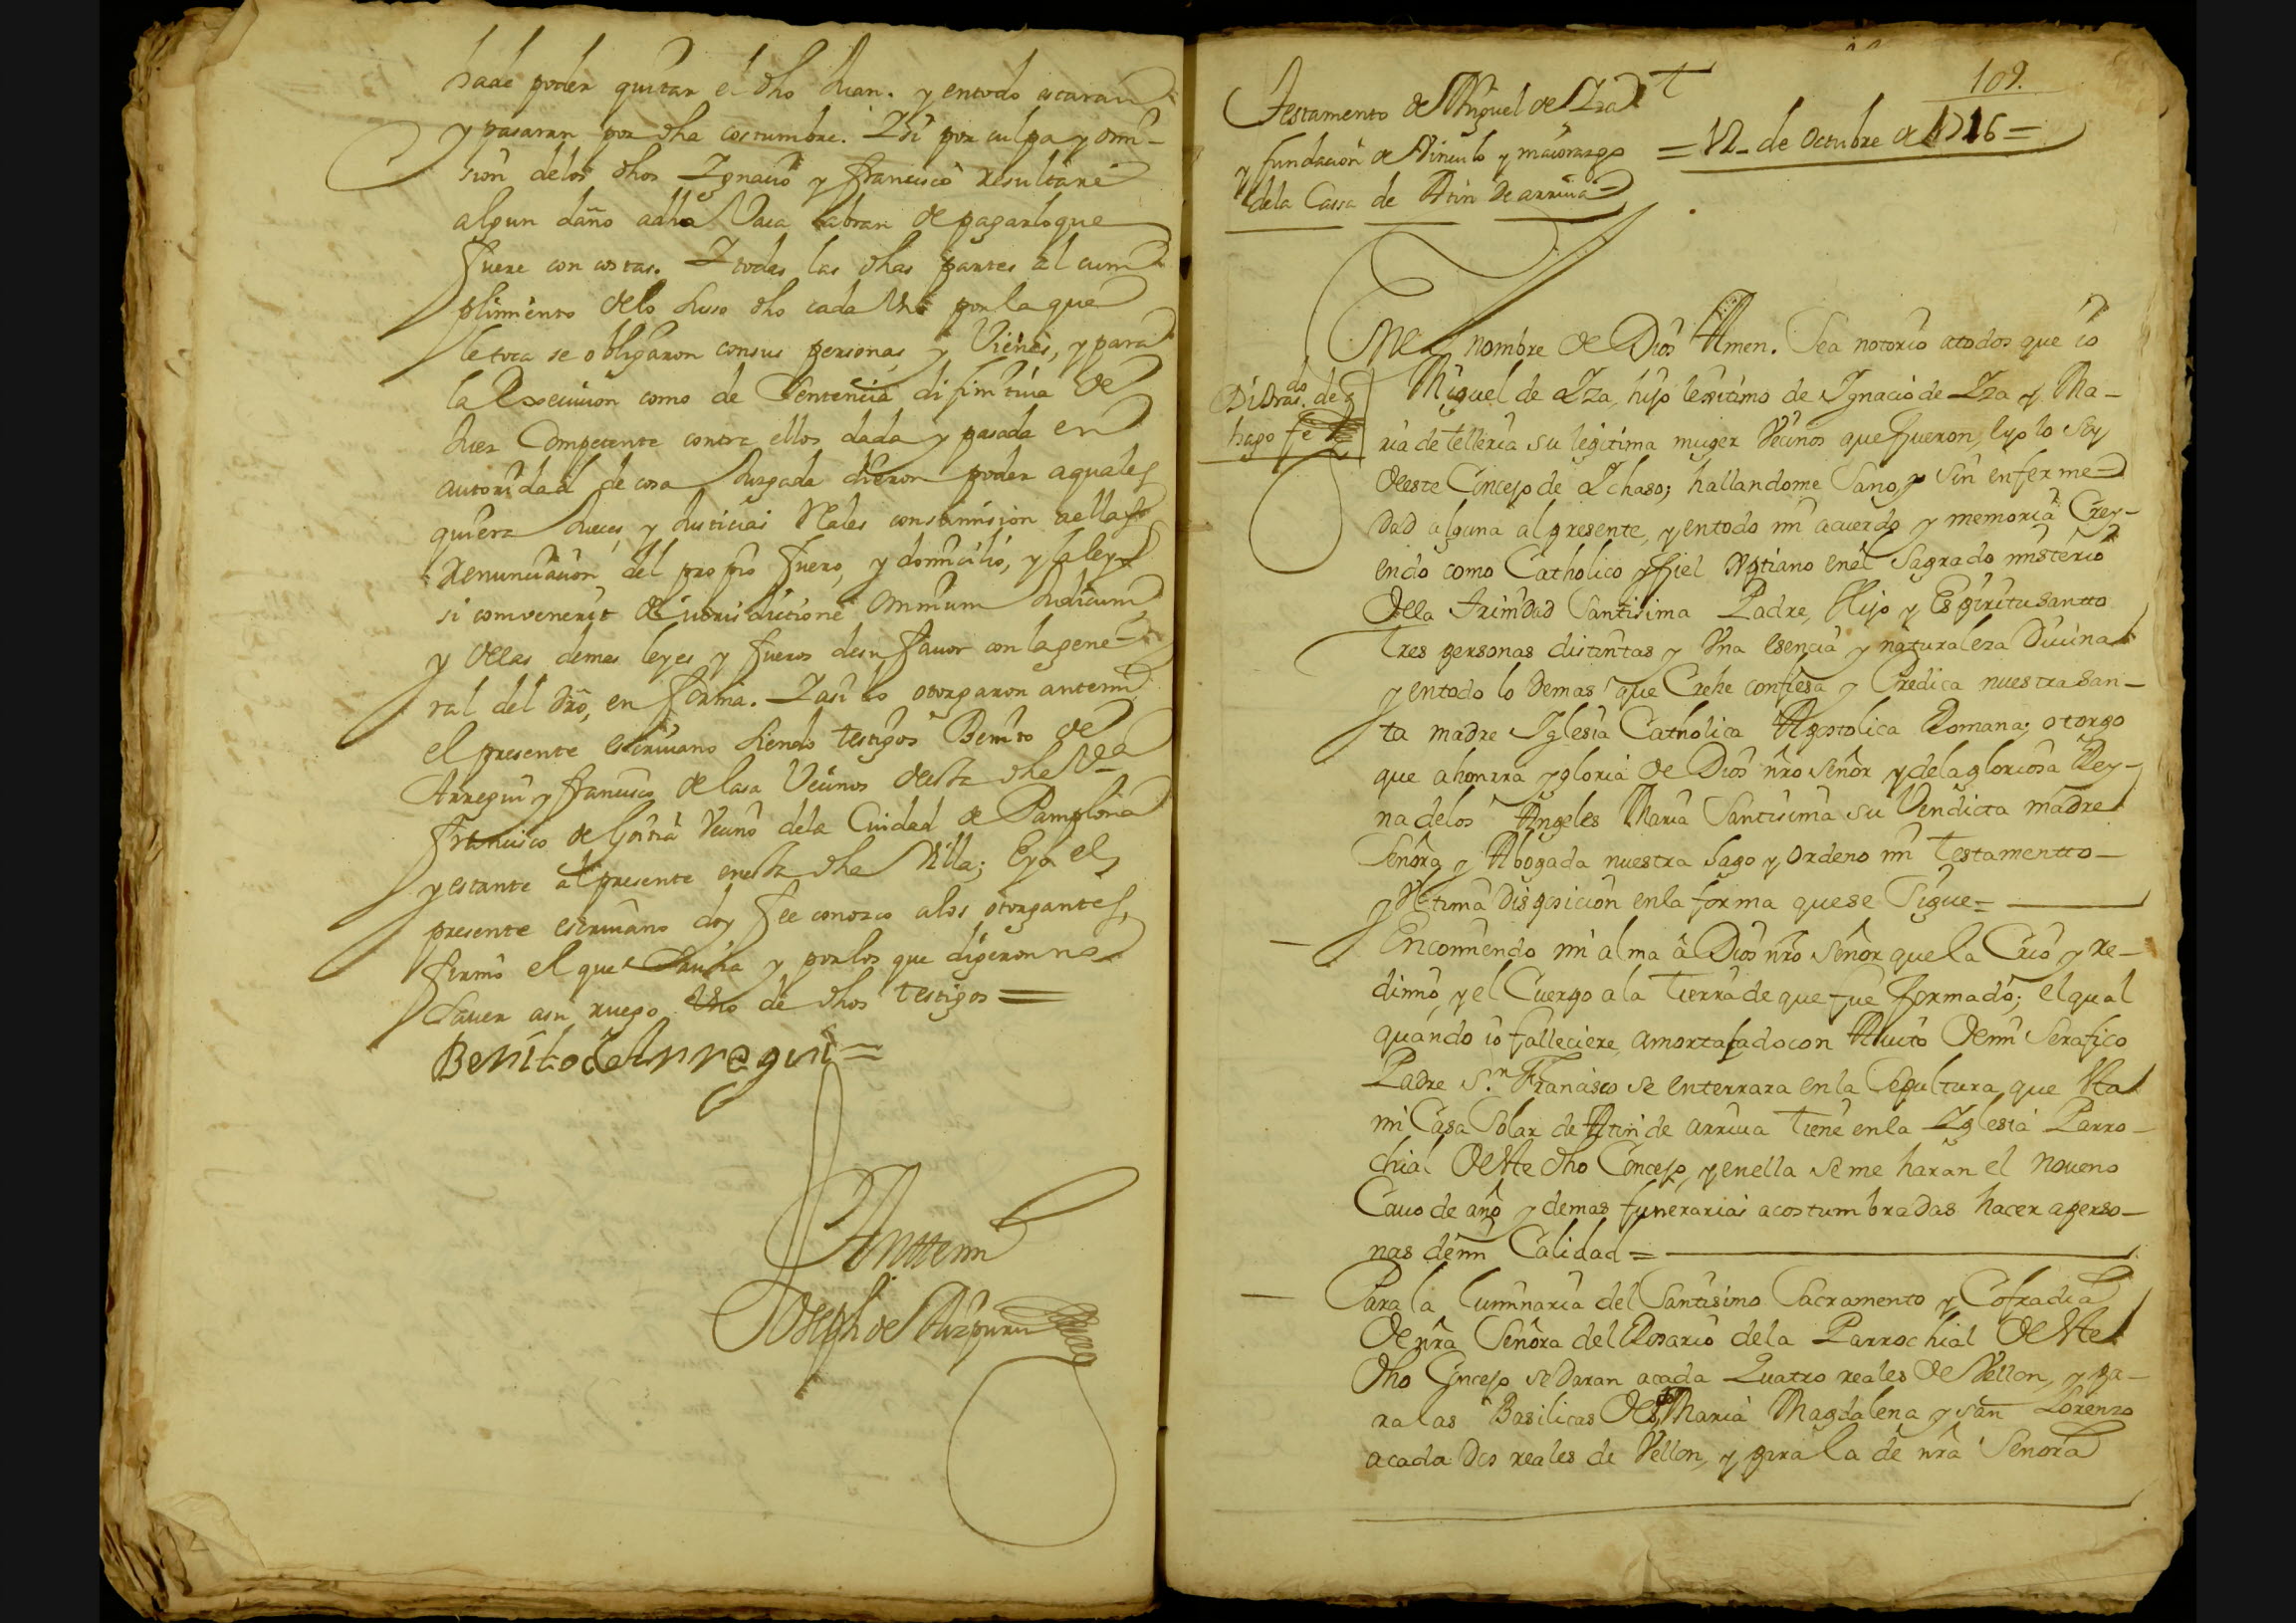 hade poder quitar el dho Juan. y entodo estaran
y pasaran por dha costumbre. Y si por culpa y omi-
sion delos dhos Ygnacio y francisco resultare
algun daño adha Vaca habran de pagarlo que
fuere con costas. Y todas las dhas partes al cum
plimiento delo suso dho cada Vno por la que
le toca se obligaron consus personas y Vienes, y para
la Execucion como de Sentencia difinitiua de
Juez Competente contra ellos dada y pasada en
autoridad de cosa Juzgada dieron poder aquales
quiera Jueces y Justicias Rales consumision aellas
Renunciacion del propio fuero, y domicilio, y la ley
si combenerit de iurisdictione omnium Judicum
y dellas demas leyes y fueros desu fauor con lagene-
ral del dro, en forma. Y asi lo otorgaron antemi
el presente escriuano siendo testigos Benito de
Arregui y francisco de lasa Vecinos desta dha Va
francisco de Goñia Vecino dela Ciudad de Pamplona
y estante al presente enesta dha Villa; Eyo el
presente escriuano doy fee conozco alos otorgantes,
firmo el que Sauia y porlos que digeron no
Sauer asu ruego Vno de dhos testigos =
Benito de Arregui =
Anttemi
Joseph de Aizpuru
109.
Testamento de Miguel de Yza
y fundacion de Vinculo y maiorazgo
dela Cassa de Atin de arriua =
= 12 de Octubre de 1716 =
Enel nombre de Dios Amen. Sea notorio atodos que io
Di dos. de
hago fe
Miguel de Yza, hijo lexitimo de Ignacio de Yza y Ma-
ria de Telleria su legitima muger Vecinos que fueron, lyo lo Soy
deeste Concejo de Ychaso; hallandome Sano, y Sin enferme-
dad alguna al presente, y entodo mi acuerdo y memoria Crey-
endo como Catholico y fiel Xptiano enel Sagrado misterio
dela Trinidad Santisima Padre, Hijo y Espiritu Santto
Tres personas distintas y Vna esencia y naturaleza Diuina
y entodo lo demas que Crehe confiesa y Predica nuestra San-
ta madre Iglesia Catholica Apostolica Romana; otorgo
que ahonrra y gloria de Dios nro Señor y dela gloriosa Rey-
na delos Angeles Maria Santisima su Vendicta madre
Señora y Abogada nuestra hago y ordeno mi Testamentto
y Vltima disposicion enla forma quese Sigue =
Encomiendo mi alma â Dios nro Señor que la Crio y re-
dimio, y el Cuerpo ala Tierra de que fue formado; el qual
quando io falleciere amortajado con Auito de mi Serafico
Padre Sn. Francisco se enterrara enla Sepultura que Vta
mi Casa Solar de Atin de arriua tiene enla Yglesia Parro-
chial deste dho Concejo, y enella seme haran el noueno
Cauo de año y demas funerarias acostumbradas hacer aperso-
nas demi Calidad =
Para la luminaria del Santisimo Sacramento y Cofradia
de nra Señora del Rosario dela Parrochial deste
dho Concejo se daran acada Quatro reales de Vellon, y pa-
ra las Basilicas de Sta Maria Magdalena y San Lorenzo
acada dos reales de Vellon, y para la de nra Señora